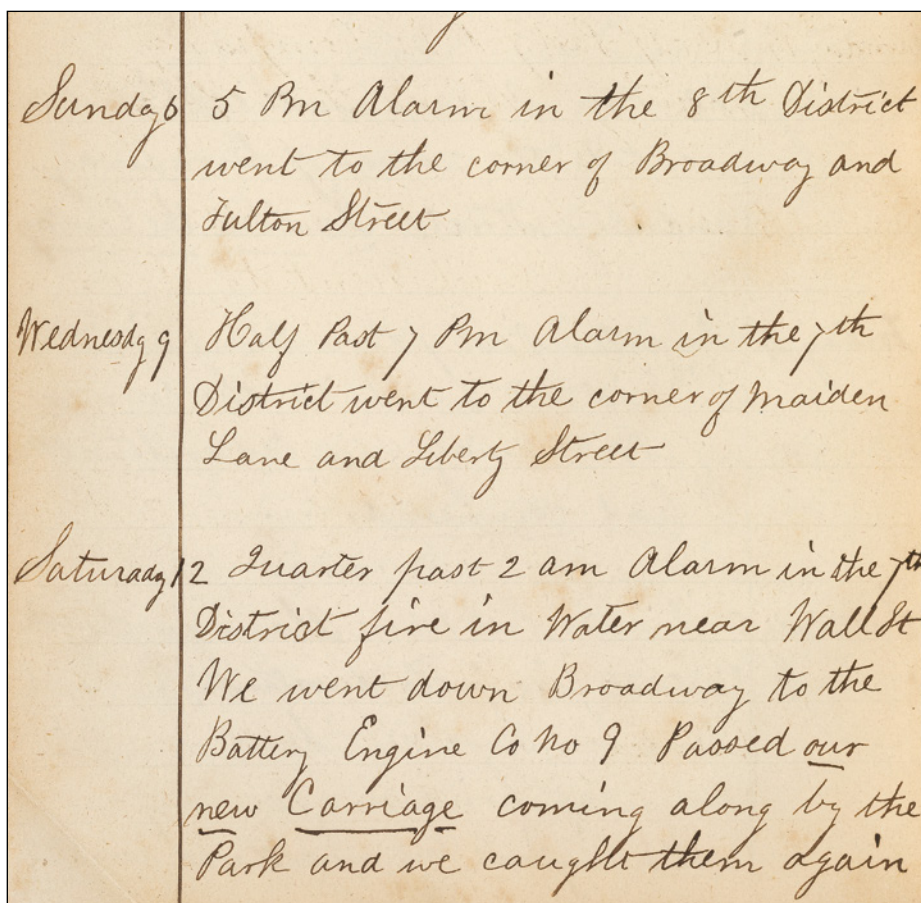 Sunday 6 5 Pm Alarm in the 8th District
went to the corner of Broadway and
Fulton Street
Wednesdy 9 Half Past 7 Pm Alarm in the 7th
District went to the corner of Maiden
Lane and Liberty Street
Saturady 12 Quarter past 2 am Alarm in the 7th
District fire in Water near Wall St
We went down Broadway to the
Battery Engine Co No 9 Passed our
new Carriage coming along by the
Park and we caught them again